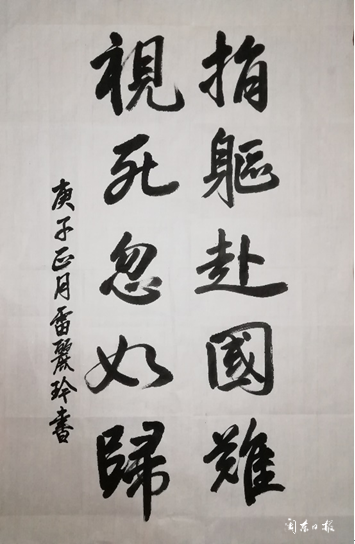 捐軀赴國難
視死忽如歸
庚子正月雷麗玲書
闽东日报